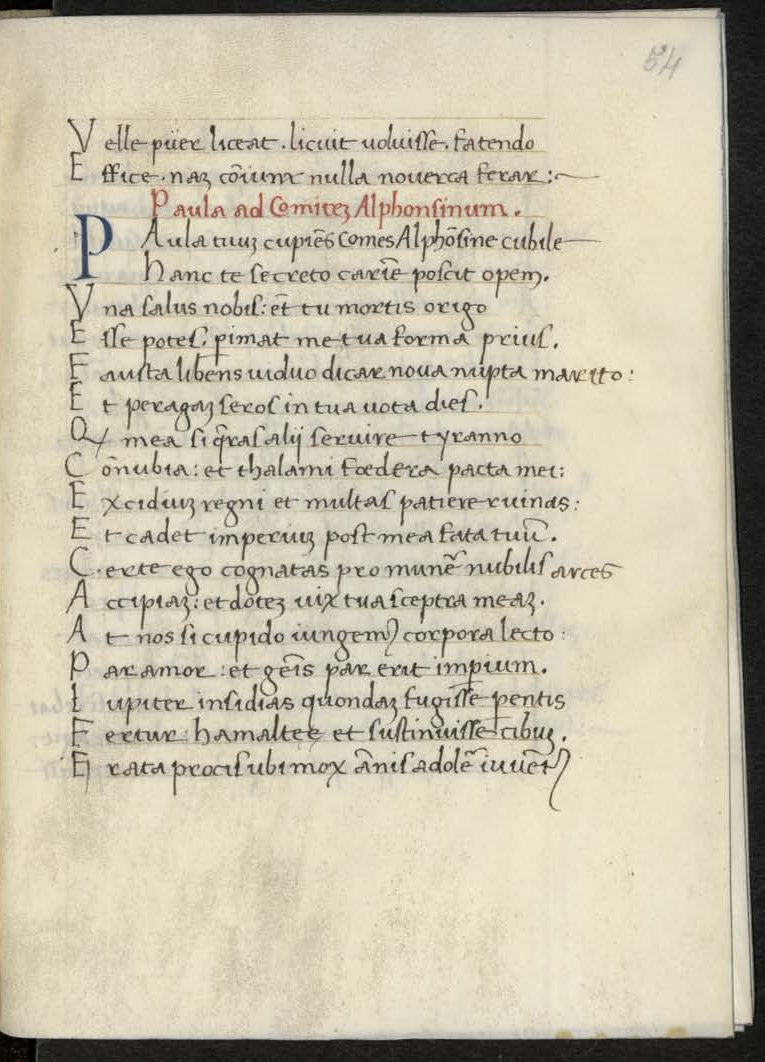 54
Velle püer liceat. licuit uoluisse. fatendo
Effice. naʒ cōiunx nulla nouerca ferar:~
Paula ad Comiteʒ Alphonsinum.
PAula tuuʒ cupiēs Comes Alphōsine cubile
hanc te secreto cariē poscit opem.
Vna salus nobis: et̄ tu mortis origo
Esse potes. p̱imat me tua forma prius.
Fausta libens uiduo dicar noua nupta marito:
Et peragaʒ seros in tua uota dies.
mea si q̄ras alij seruire tyranno
Cōnubia: et thalami fœdera pacta mei:
Excidiuʒ regni et multas patiere ruinas:
Et cadet imperiuʒ post mea fata tuū.
Certe ego cognatas pro munē nubilis arces
Accipiaʒ: et doteʒ uix tua sceptra meaʒ.
At nos si cupido iungem᷒ corpora lecto:
Par amor: et geīs par erit imp̱ium.
Iupiter insidias quondaʒ fugisse p̱entis
Fertur: hamalteę et sustinuisse cibuʒ.
rata procis ubi mox ānis adolē iuuēt᷒